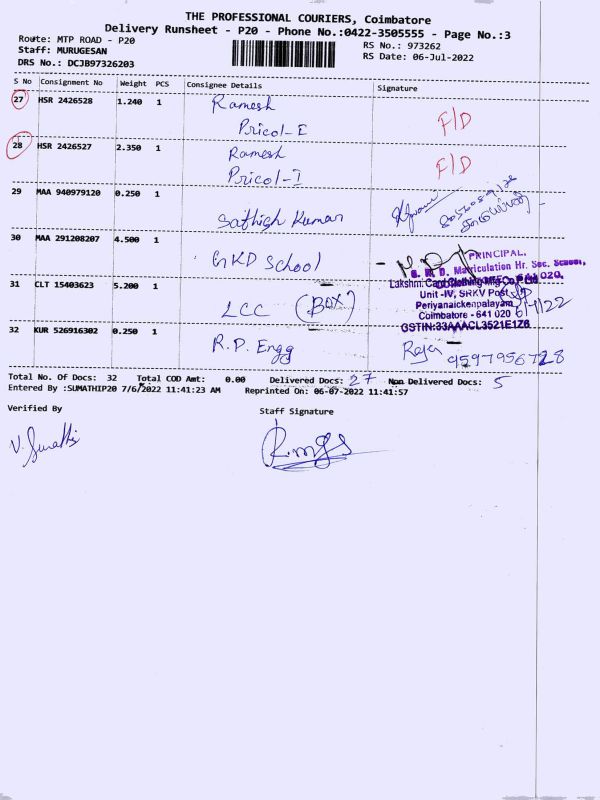 THE PROFESSIONAL COURIERS, Coimbatore
Delivery Runsheet - P20 - Phone No.:0422-3505555 - Page No.:3
Route: MTP ROAD - P20
RS No.: 973262
Staff: MURUGESAN
RS Date: 06-Jul-2022
DRS No.: DCJB97326203
S No Consignment No Weight PCS Consignee Details Signature
27 HSR 2426528 1.240 1 Ramesh
Pricol-E F/D
28 HSR 2426527 2.350 1 Ramesh
Pricol-I F/D
29 MAA 940979120 0.250 1
Sathish Kumar
30 MAA 291208207 4.500 1 GKD School
PRINCIPAL,
Matriculation Hr. Sec. School,
31 CLT 15403623 5.200 1 LCC (BOX)
Unit -IV, SRKV Post
Periyanaickenpalayam
Coimbatore - 641 020
GSTIN:33AAACL3521E1Z6
32 KUR 526916302 0.250 1 R.P. Engg Raja 9597956728
Total No. Of Docs: 32 Total COD Amt: 0.00 Delivered Docs: 27 Non Delivered Docs: 5
Entered By :SUMATHIP20 7/6/2022 11:41:23 AM Reprinted On: 06-07-2022 11:41:57
Verified By Staff Signature
V. Sumathi